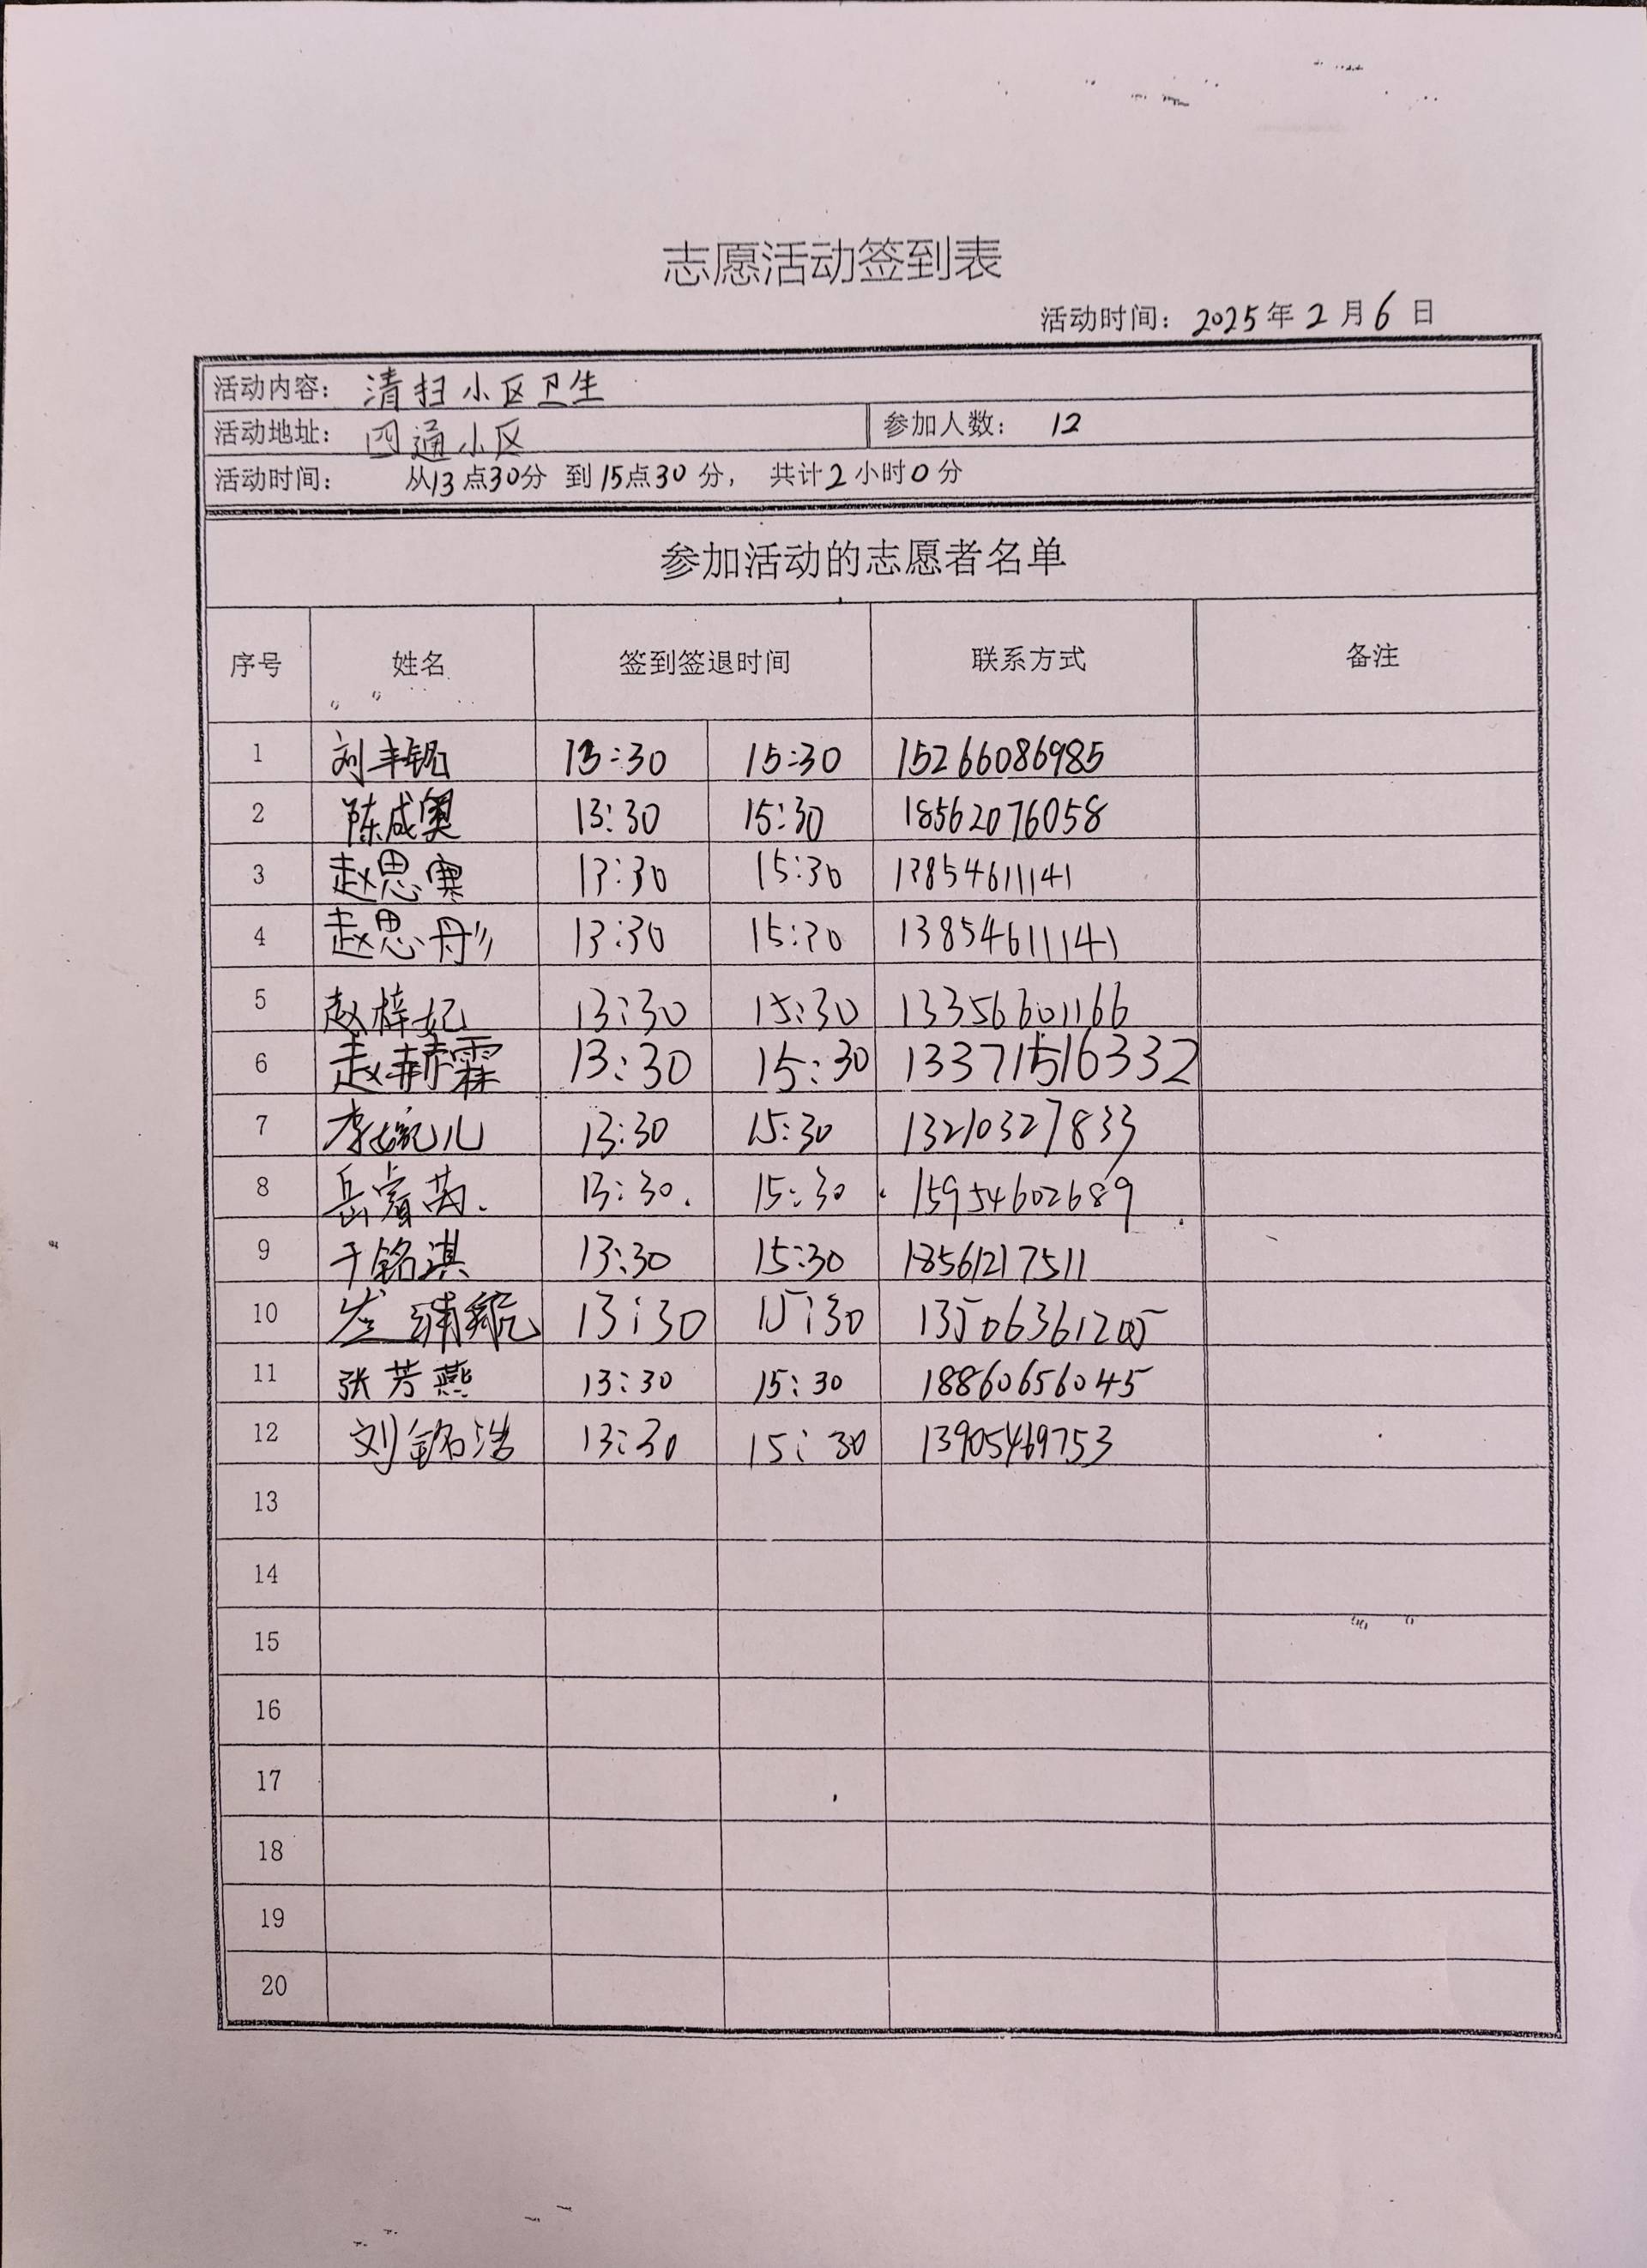 志愿活动签到表
活动时间：2025年2月6日
活动内容：清扫小区卫生
活动地址：四通小区 参加人数：12
活动时间：从13点30分 到15点30分，共计2小时0分
参加活动的志愿者名单
序号 姓名 签到签退时间 联系方式 备注
1 刘丰铭 13:30 15:30 15266086985
2 陈咸奥 13:30 15:30 18562076058
3 赵思寒 13:30 15:30 13854611141
4 赵思彤 13:30 15:30 13854611141
5 赵梓妃 13:30 15:30 13356601166
6 赵赫霖 13:30 15:30 13371516332
7 李婉儿 13:30 15:30 13210327833
8 岳睿芮 13:30 15:30 15954602689
9 于铭淇 13:30 15:30 18561217511
10 13:30 15:30 13506361205
11 张芳燕 13:30 15:30 18860656045
12 刘铭浩 13:30 15:30 13905469753
13
14
15
16
17
18
19
20